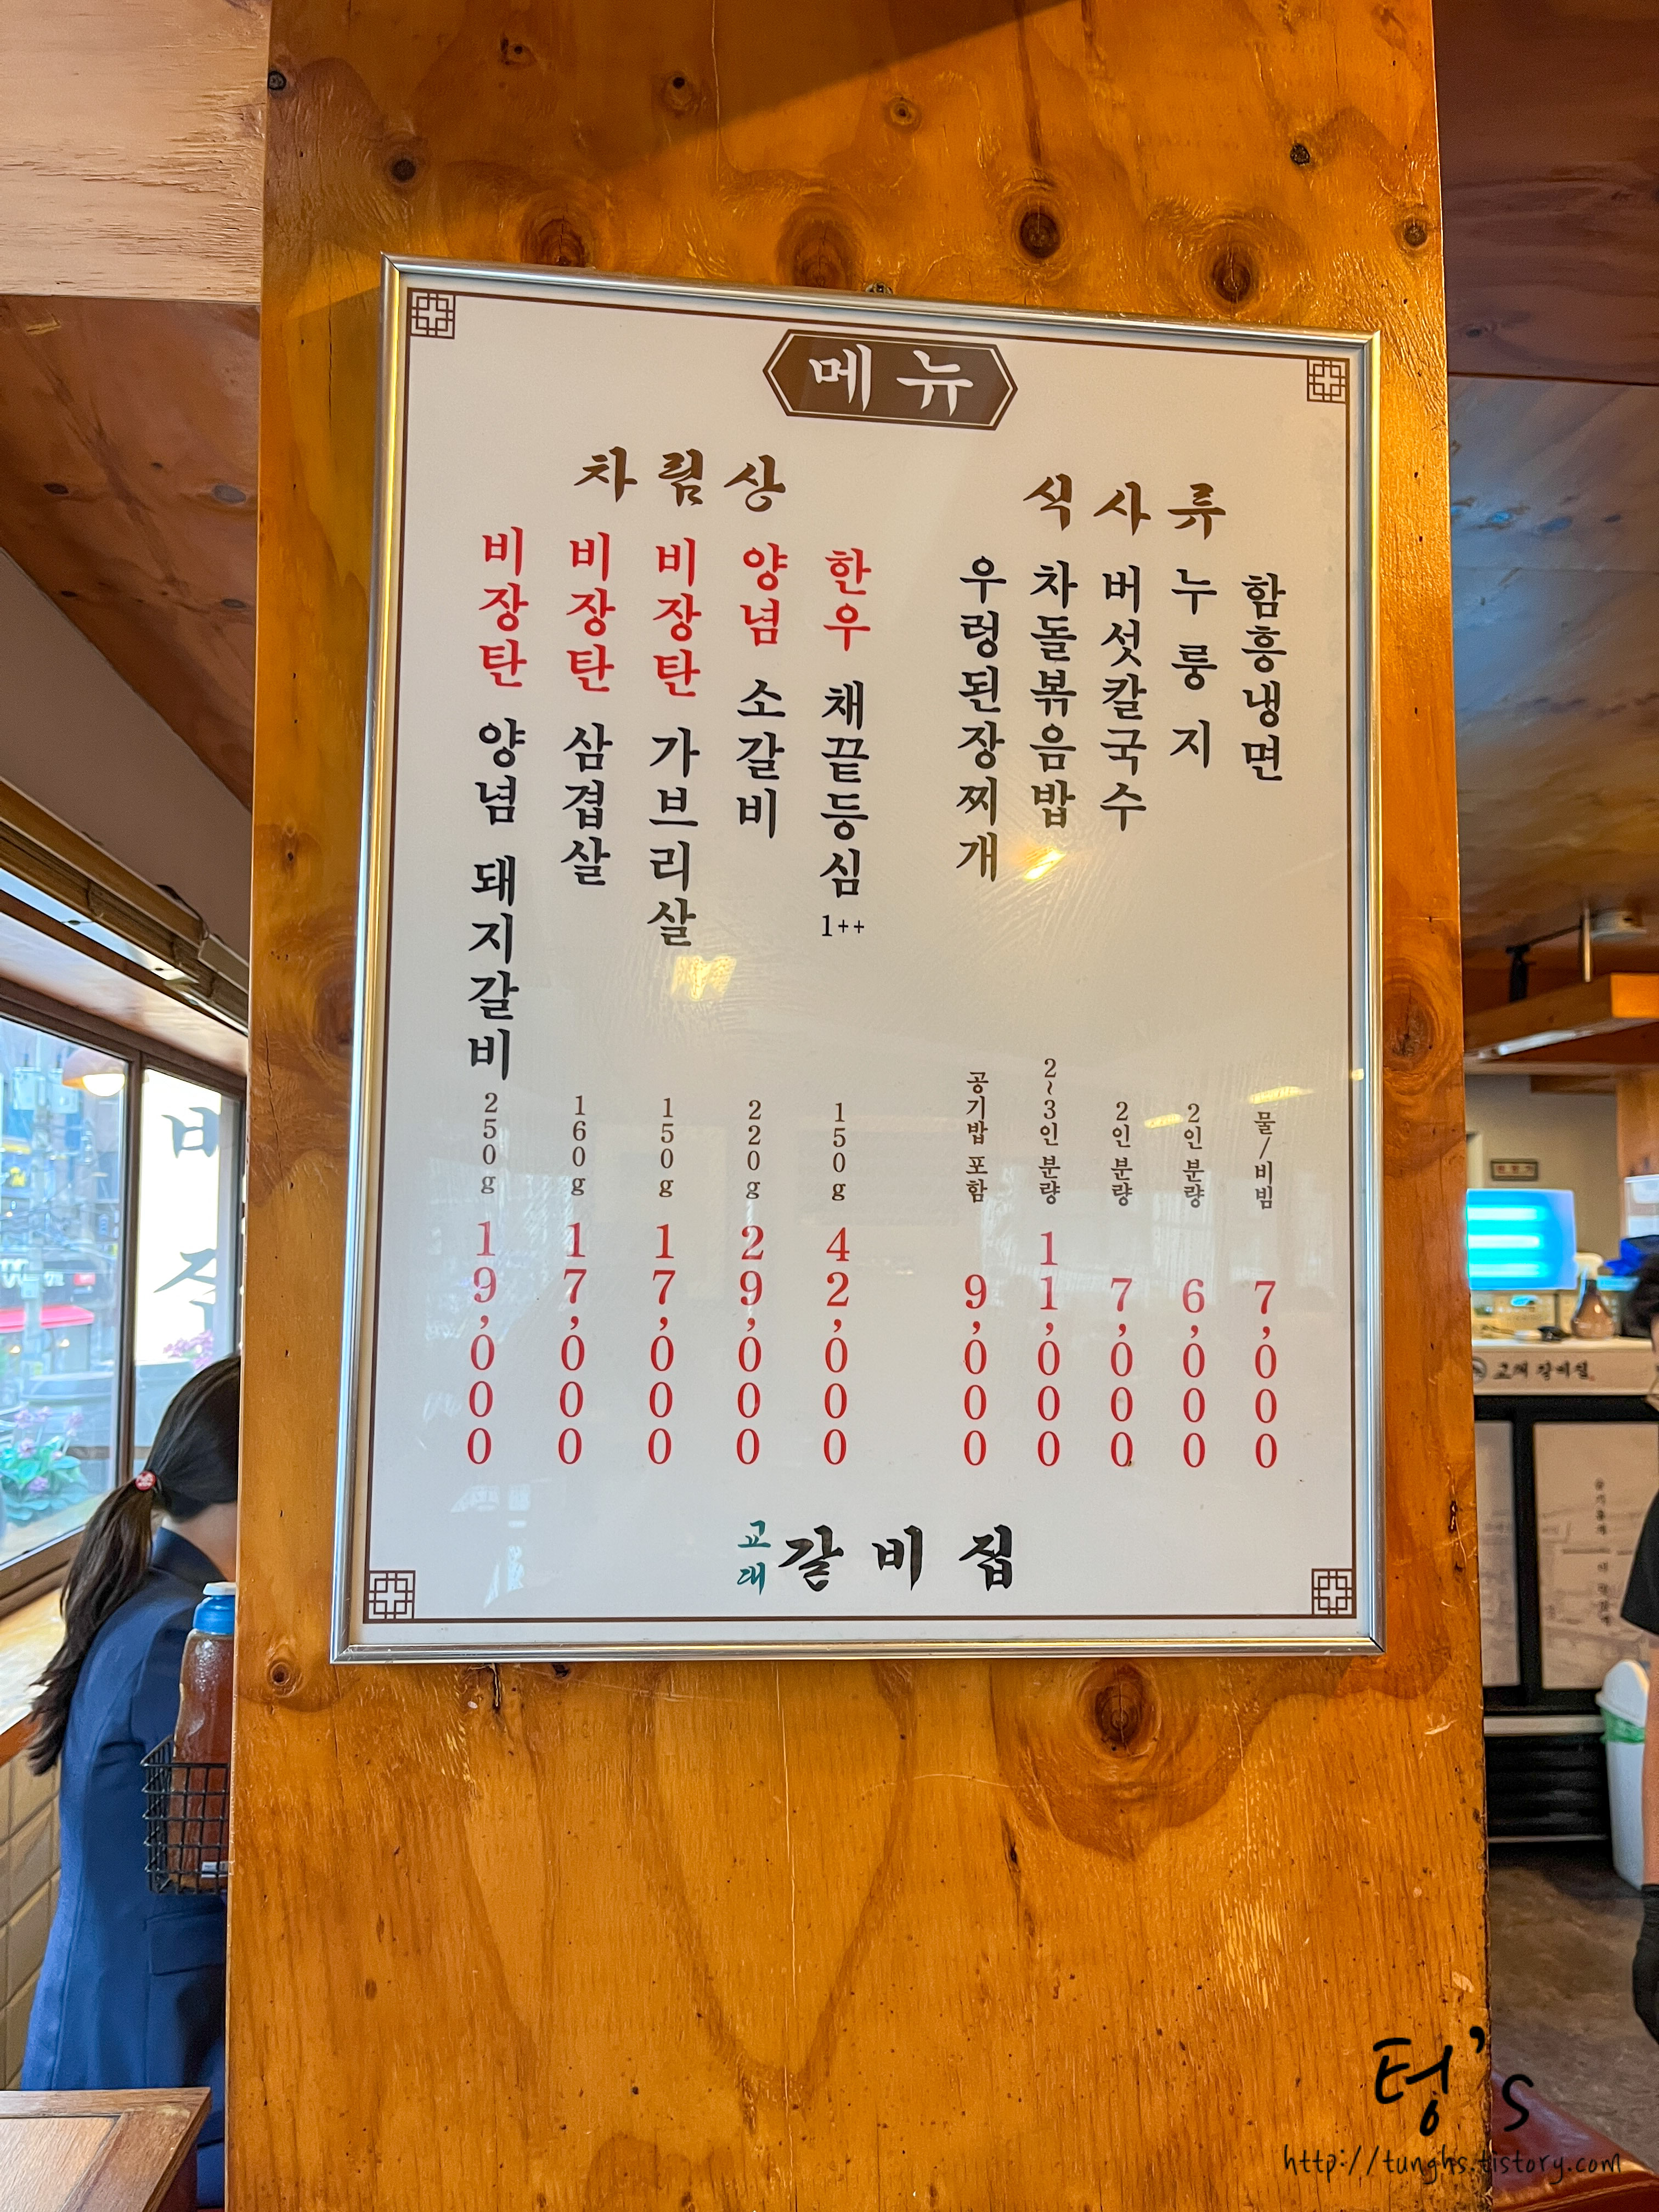 메뉴
차림상
비장탄 양념 돼지갈비 250g 19,000
비장탄 삼겹살 160g 17,000
비장탄 가브리살 150g 17,000
양념 소갈비 220g 29,000
한우 채끝등심 1++ 150g 42,000
식사류
우렁된장찌개 공기밥 포함 9,000
차돌볶음밥 2~3인 분량 11,000
버섯칼국수 2인 분량 7,000
누룽지 2인 분량 6,000
함흥냉면 물/비빔 7,000
교대 갈비집
교대 갈비집
텅's
http://tunghs.tistory.com